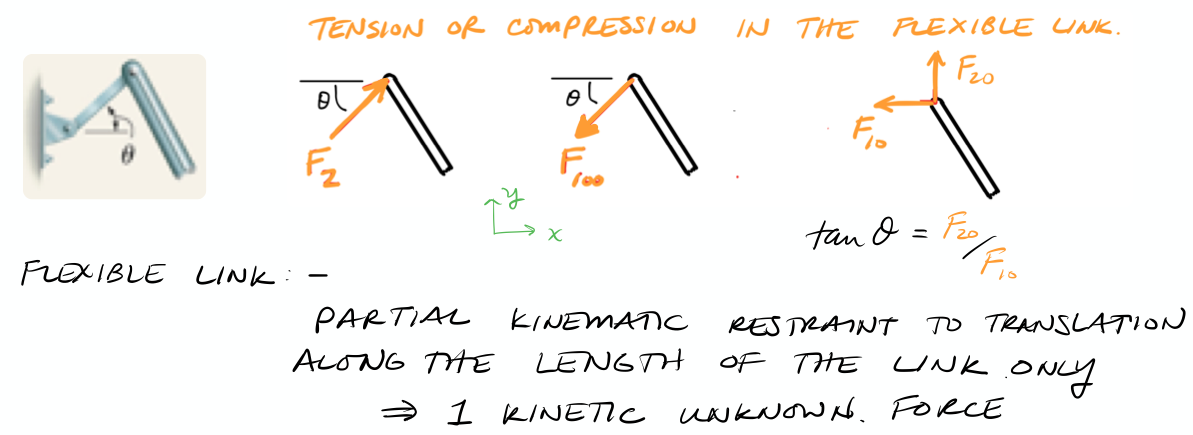 TENSION OR COMPRESSION IN THE FLEXIBLE LINK.
θ
θ
F₂
θ
F₁₀₀
F₂₀
F₁₀
y
x
tan θ = F₂₀/F₁₀
FLEXIBLE LINK: -
PARTIAL KINEMATIC RESTRAINT TO TRANSLATION
ALONG THE LENGTH OF THE LINK ONLY
⇒ 1 KINETIC UNKNOWN. FORCE